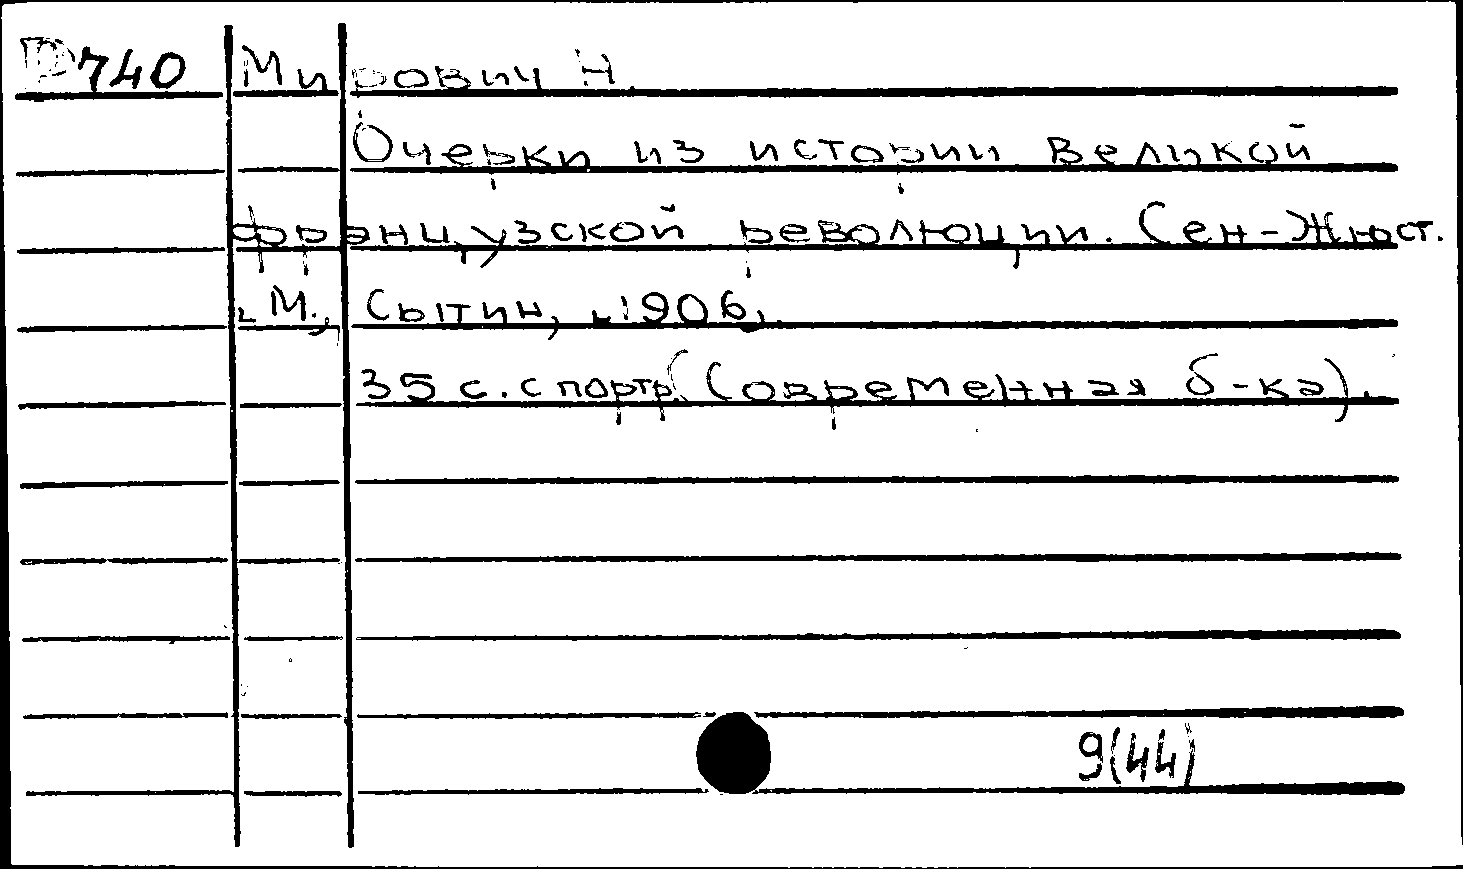 Р740 Мирович Н.
Очерки из истории Великой
французской революции. Сен-Жюст.
М., Сытин, 1906,
35 с. с портр. (Современная б-ка).
9(44)